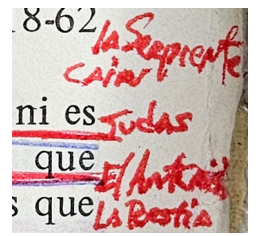 18-62
la Serpiente
Cain,
ni es Judas
que El Anticris
s que La Bestia